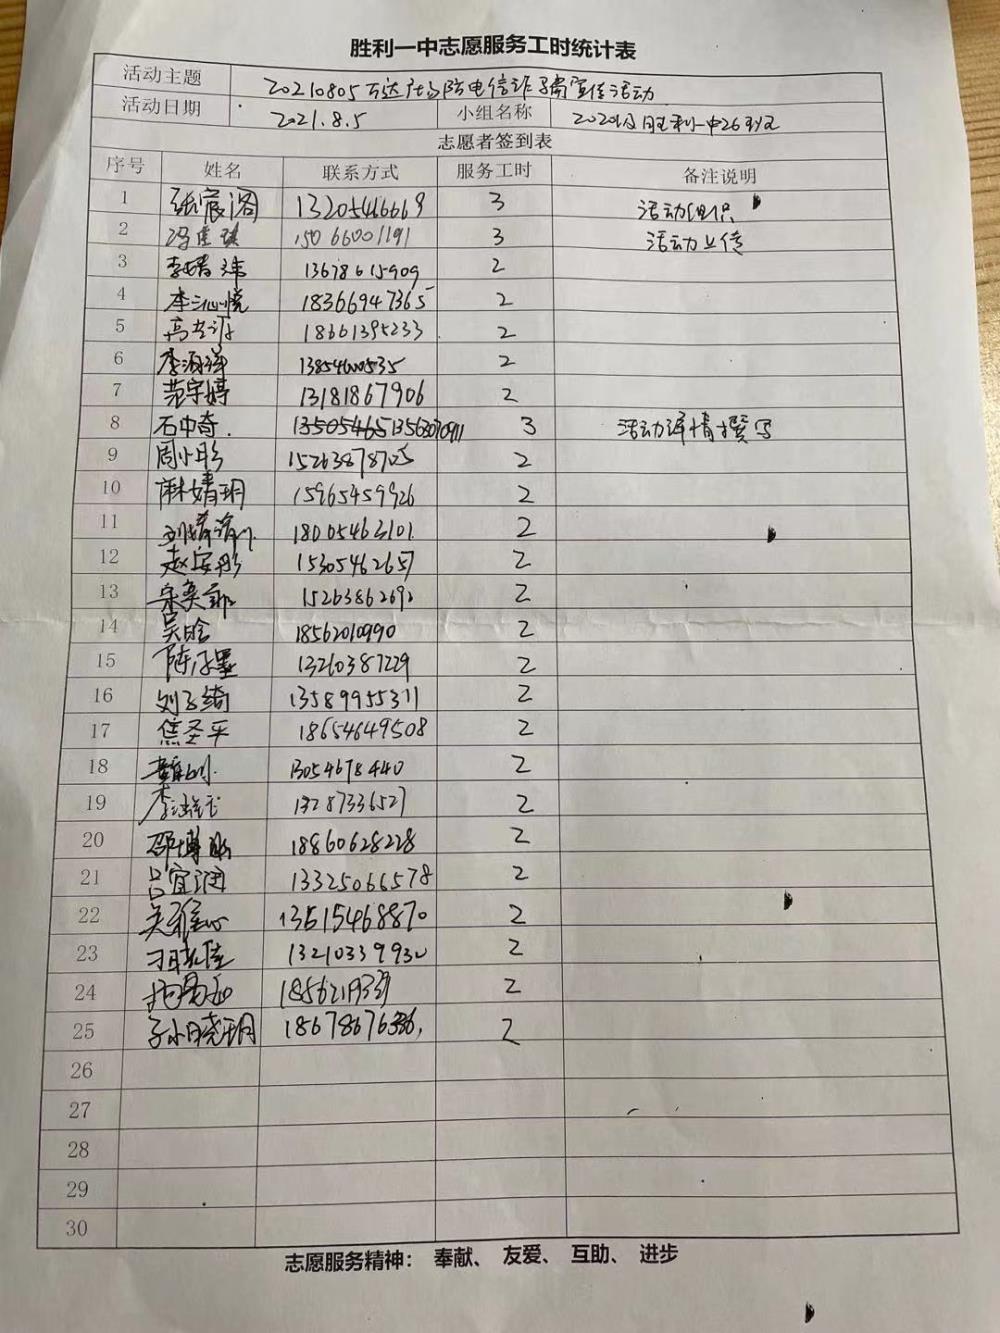 胜利一中志愿服务工时统计表
活动主题 20210805万达社区防电信诈骗宣传活动
活动日期 2021.8.5 小组名称 2020级胜利一中26班
志愿者签到表
序号 姓名 联系方式 服务工时 备注说明
1 张宸阁 13205466669 3 活动组织
2 冯佳琪 15066001191 3 活动上传
3 李婧玮 13678615909 2
4 李沁悦 18366947365 2
5 18661395233 2
6 13854600535 2
7 范宇婷 13181867906 2
8 石中奇. 1350546513563070911 3 活动详情撰写
9 周小彤 15263878705 2
10 麻婧玥 15965459926 2
11 18005463101 2
12 赵安彤 15305462657 2
13 15263862692 2
14 吴晗 18562010990 2
15 陈子墨 13260387229 2
16 刘子绮 13589955311 2
17 焦圣平 18654649508 2
18 13054678440 2
19 13287336527 2
20 18860628228 2
21 吕宜润 13325066578 2
22 13615468870 2
23 13210339930 2
24 2
25 孙晓玥 2
26
27
28
29
30
志愿服务精神： 奉献、 友爱、 互助、 进步